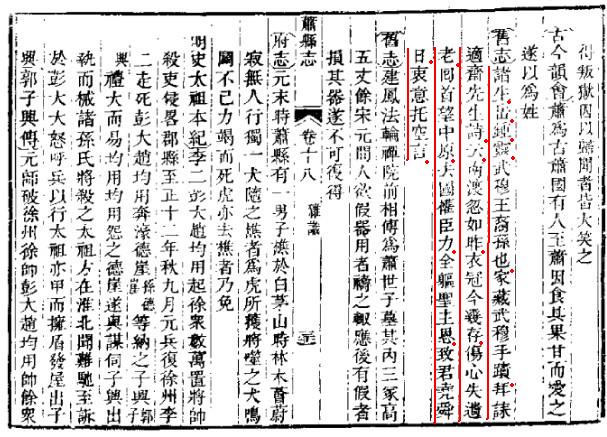 得叛獄因以聞者皆大笑之
古今韻會蕭爲古蕭國有人至蕭因食其果甘而愛之
遂以為姓
舊志諸生岳鍊武穆王裔孫也家藏武穆手蹟拜詠
適齋先生詩云南渡忽如昨衣冠今幾存傷心失遺
老回首望中原去國惟臣力全軀聖主恩致君堯舜
日衷意托空言
舊志建鳳法輪禪院前相傳爲蕭世子墓其內三冢高
五丈餘宋元間人欲假器用者禱之輒應後有假者
損其器遂不可復得
蕭縣志 卷十八 雜識
府志元末時蕭縣有一男子樵於白茅山時林木蓊蔚
寂無人行獨一犬隨之樵者爲虎所攫將噬之犬鳴
鬬不已力竭而死虎亦去樵者乃免
明史太祖本紀李二彭大趙均用起徐衆數萬置將帥
殺吏侵畧郡縣至正十二年秋九月元兵復徐州李
二走死彭大趙均用奔濠德崖孫德崖等納之子興郭子
興禮大而易均用均用怨之德崖遂與謀伺子興出
執而械諸孫氏將殺之太祖方在淮北聞難馳至訴
於彭大大怒呼兵以行太祖亦甲而擁盾發屋出子
興郭子興傳元師破徐州徐帥彭大趙均用帥餘衆